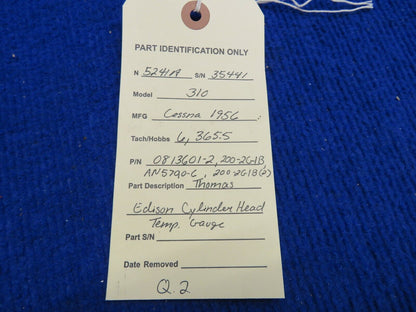 PART IDENTIFICATION ONLY
N 5241A S/N 35441
Model 310
MFG Cessna 1956
Tach/Hobbs 6,365.5
P/N 0813601-2, 200-2G1B,
AN5790-6, 200-2G1B(2)
Part Description Thomas
Edison Cylinder Head
Temp. Gauge
Part S/N
Date Removed
Q.2